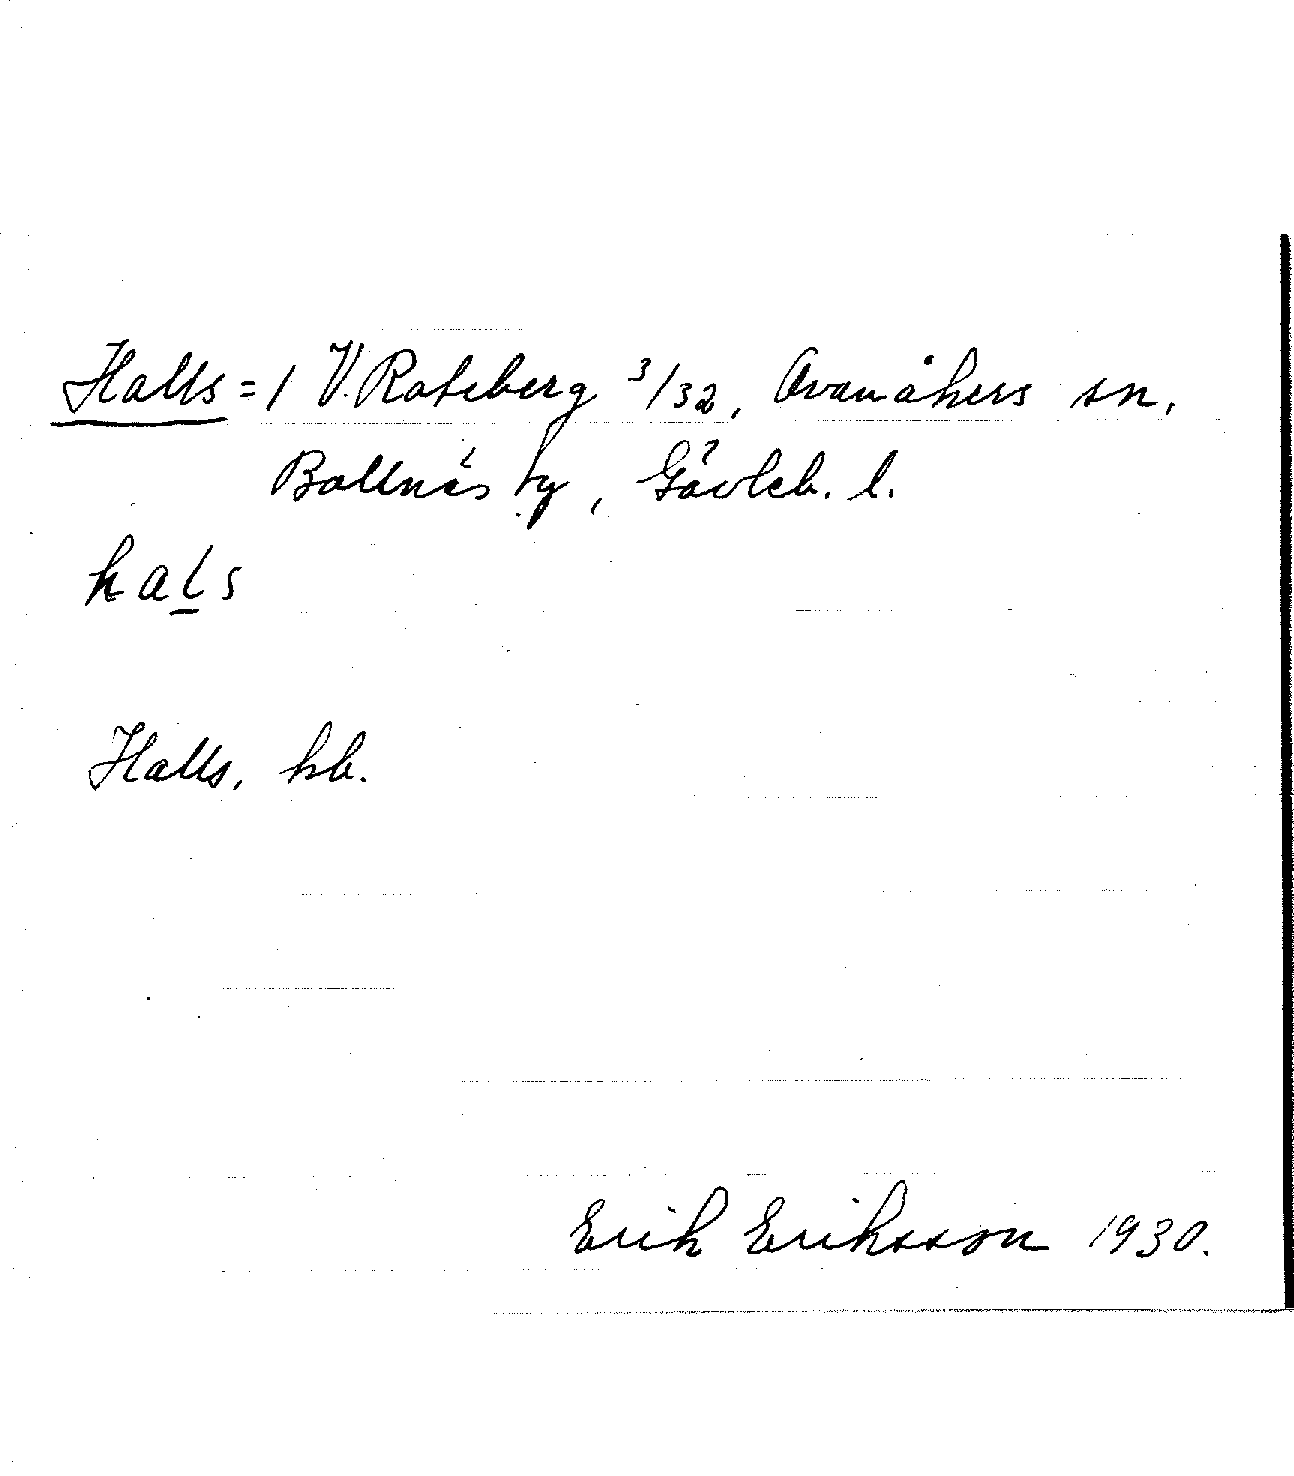 Halls = / V. Roteberg 3/32, Ovanåkers sn,
Bollnäs ty, Gävleb. l.
hals
Halls, kb.
Erik Eriksson 1930.